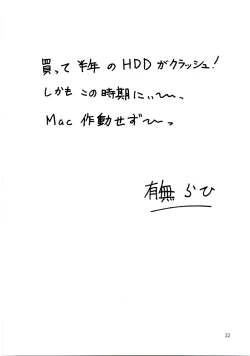 買って半年のHDDがクラッシュ!
しかもこの時期にぃ〜〜、
Mac作動せず〜〜っ
有無らひ
32